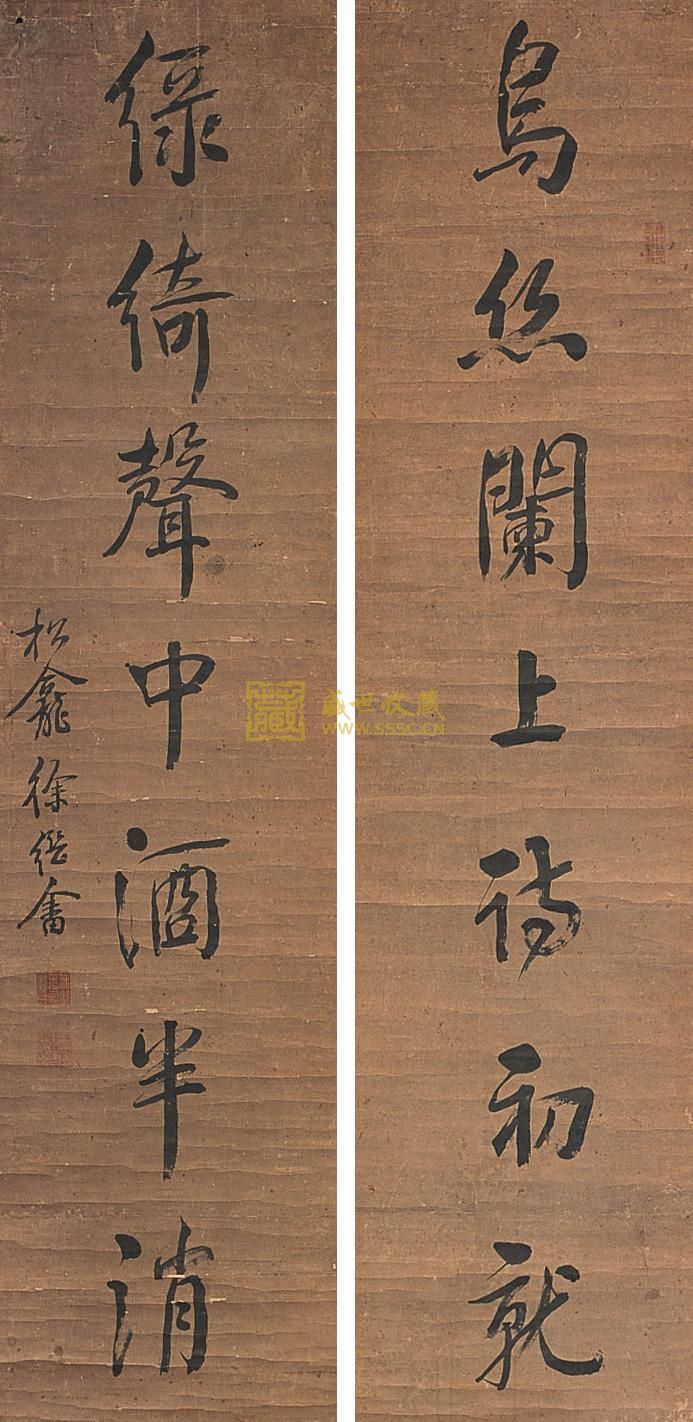 烏絲闌上詩初就
綠綺聲中酒半消
松龕徐繼畬
盛世收藏
WWW.SSSC.CN